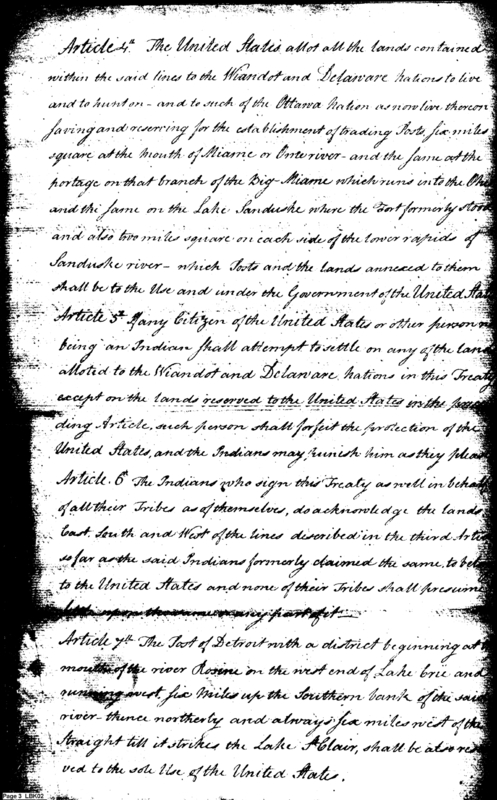 Article 4th The United States allot all the lands contained
within the said lines to the Wiandot and Delaware nations to live
and to hunt on - and to such of the Ottawa nation as now live thereon
saving and reserving for the establishment of trading Posts, six miles
square at the mouth of Miame or Ome river - and the same at the
portage on that branch of the Big-Miame which runs into the Ohi
and the same on the Lake Sanduske where the Fort formerly stood
and also two miles square on each side of the lower rapids of
Sanduske river - which Posts and the lands annexed to them
shall be to the Use and under the Government of the United Stat
Article 5th If any Citizen of the United States or other person n
being an Indian shall attempt to settle on any of the land
alloted to the Wiandot and Delaware nations in this Treaty
except on the lands reserved to the United States in the prece
ding Article, such person shall forfeit the protection of the
United States, and the Indians may punish him as they pleas
Article. 6th The Indians who sign this Treaty as well in behalf
of all their Tribes as of themselves, do acknowledge the lands
East, South and West of the lines described in the third Artic
so far as the said Indians formerly claimed the same, to belo
to the United States and none of their Tribes shall presume
upon the same or any part of it -
Article 7th The Post of Detroit with a district beginning at
mouth of the river Rosine on the west end of Lake Erie and
running west six Miles up the Southern bank of the said
river - thence northerly and always six miles west of the
Straight till it strikes the Lake St Clair, shall be also reser
ved to the sole Use of the United States.
Page 3 LBK02